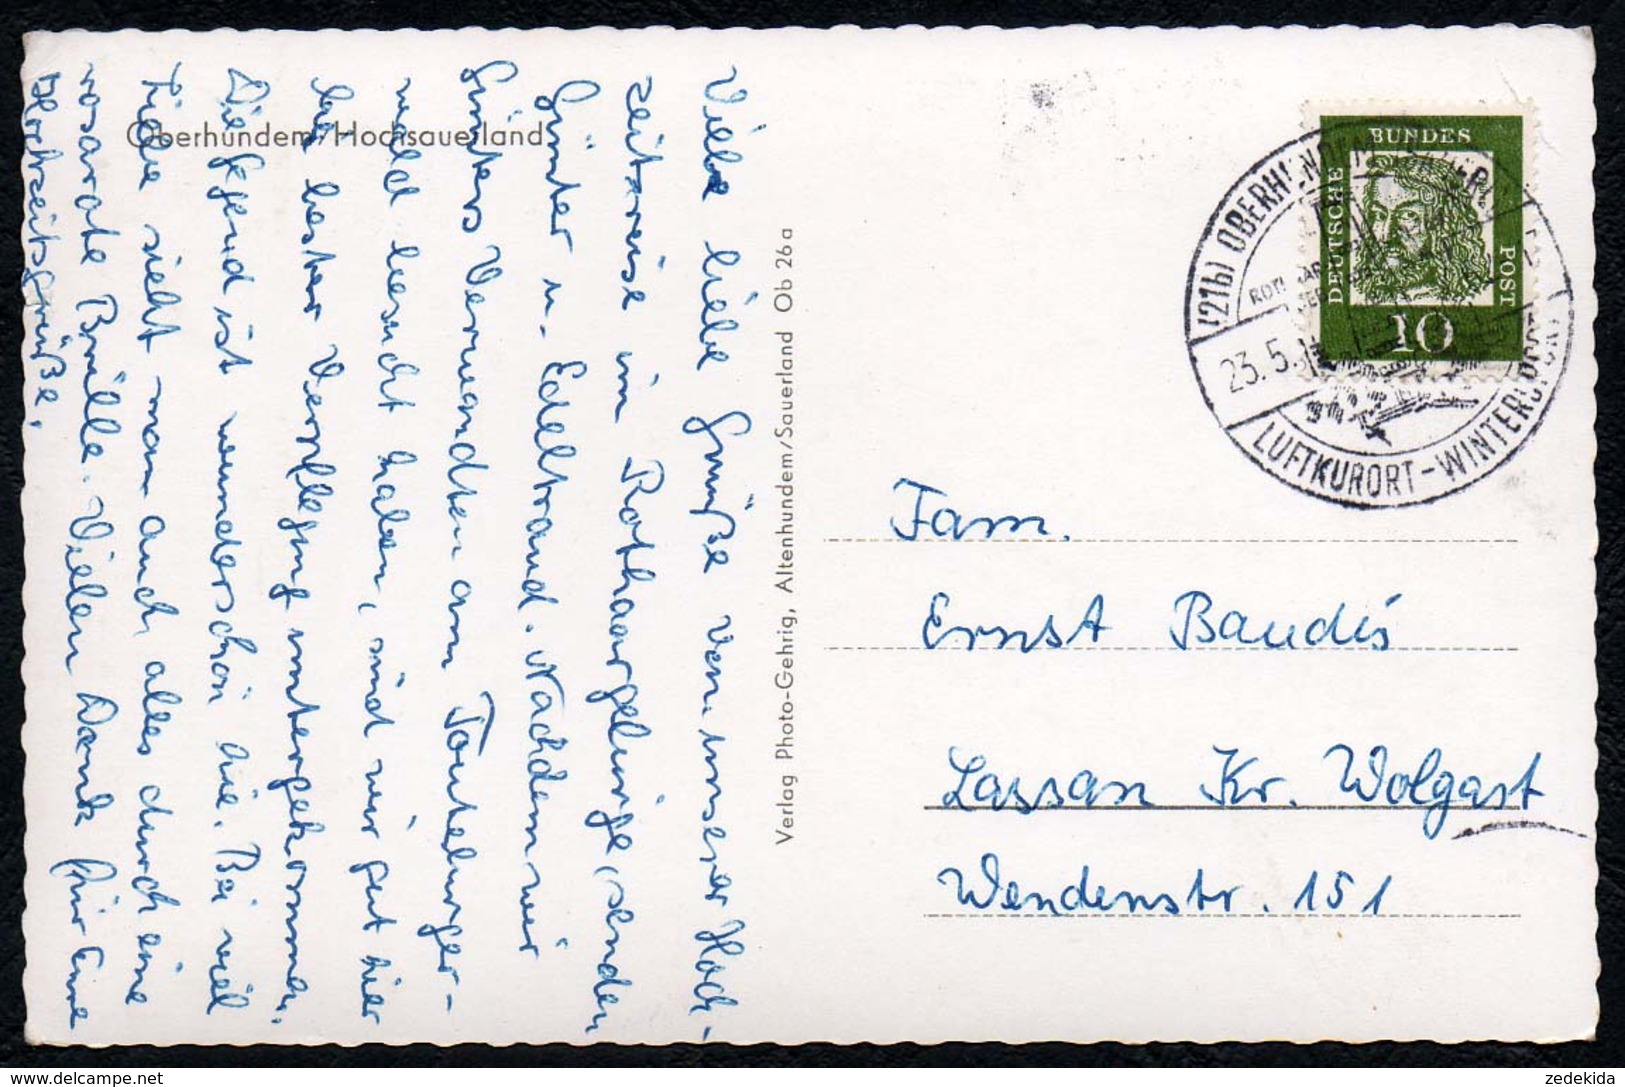 Oberhundem/Hochsauerland
Viele liebe Grüße von unserer Hoch-
zeitsreise im Rothaargebirge, senden
Günter u. Edeltraud. Nachdem wir
Günters Verwandten am Teuteburger-
wald besucht haben, sind wir gut hier
bei bester Verpflegung untergekommen.
Die Gegend ist wunderschön hier. Bei viel
Liebe sieht man auch alles durch eine
rosarote Brille. Vielen Dank für Eure
Hochzeitsgrüße.
Verlag Photo-Gehrig, Altenhundem/Sauerland Ob 26a
BUNDES
DEUTSCHE
POST
10
(21b) OBERHUNDEM
23.5.
LUFTKURORT-WINTERSPORT
Fam.
Ernst Baudis
Lassan Kr. Wolgast
Wendenstr. 151
zedekida